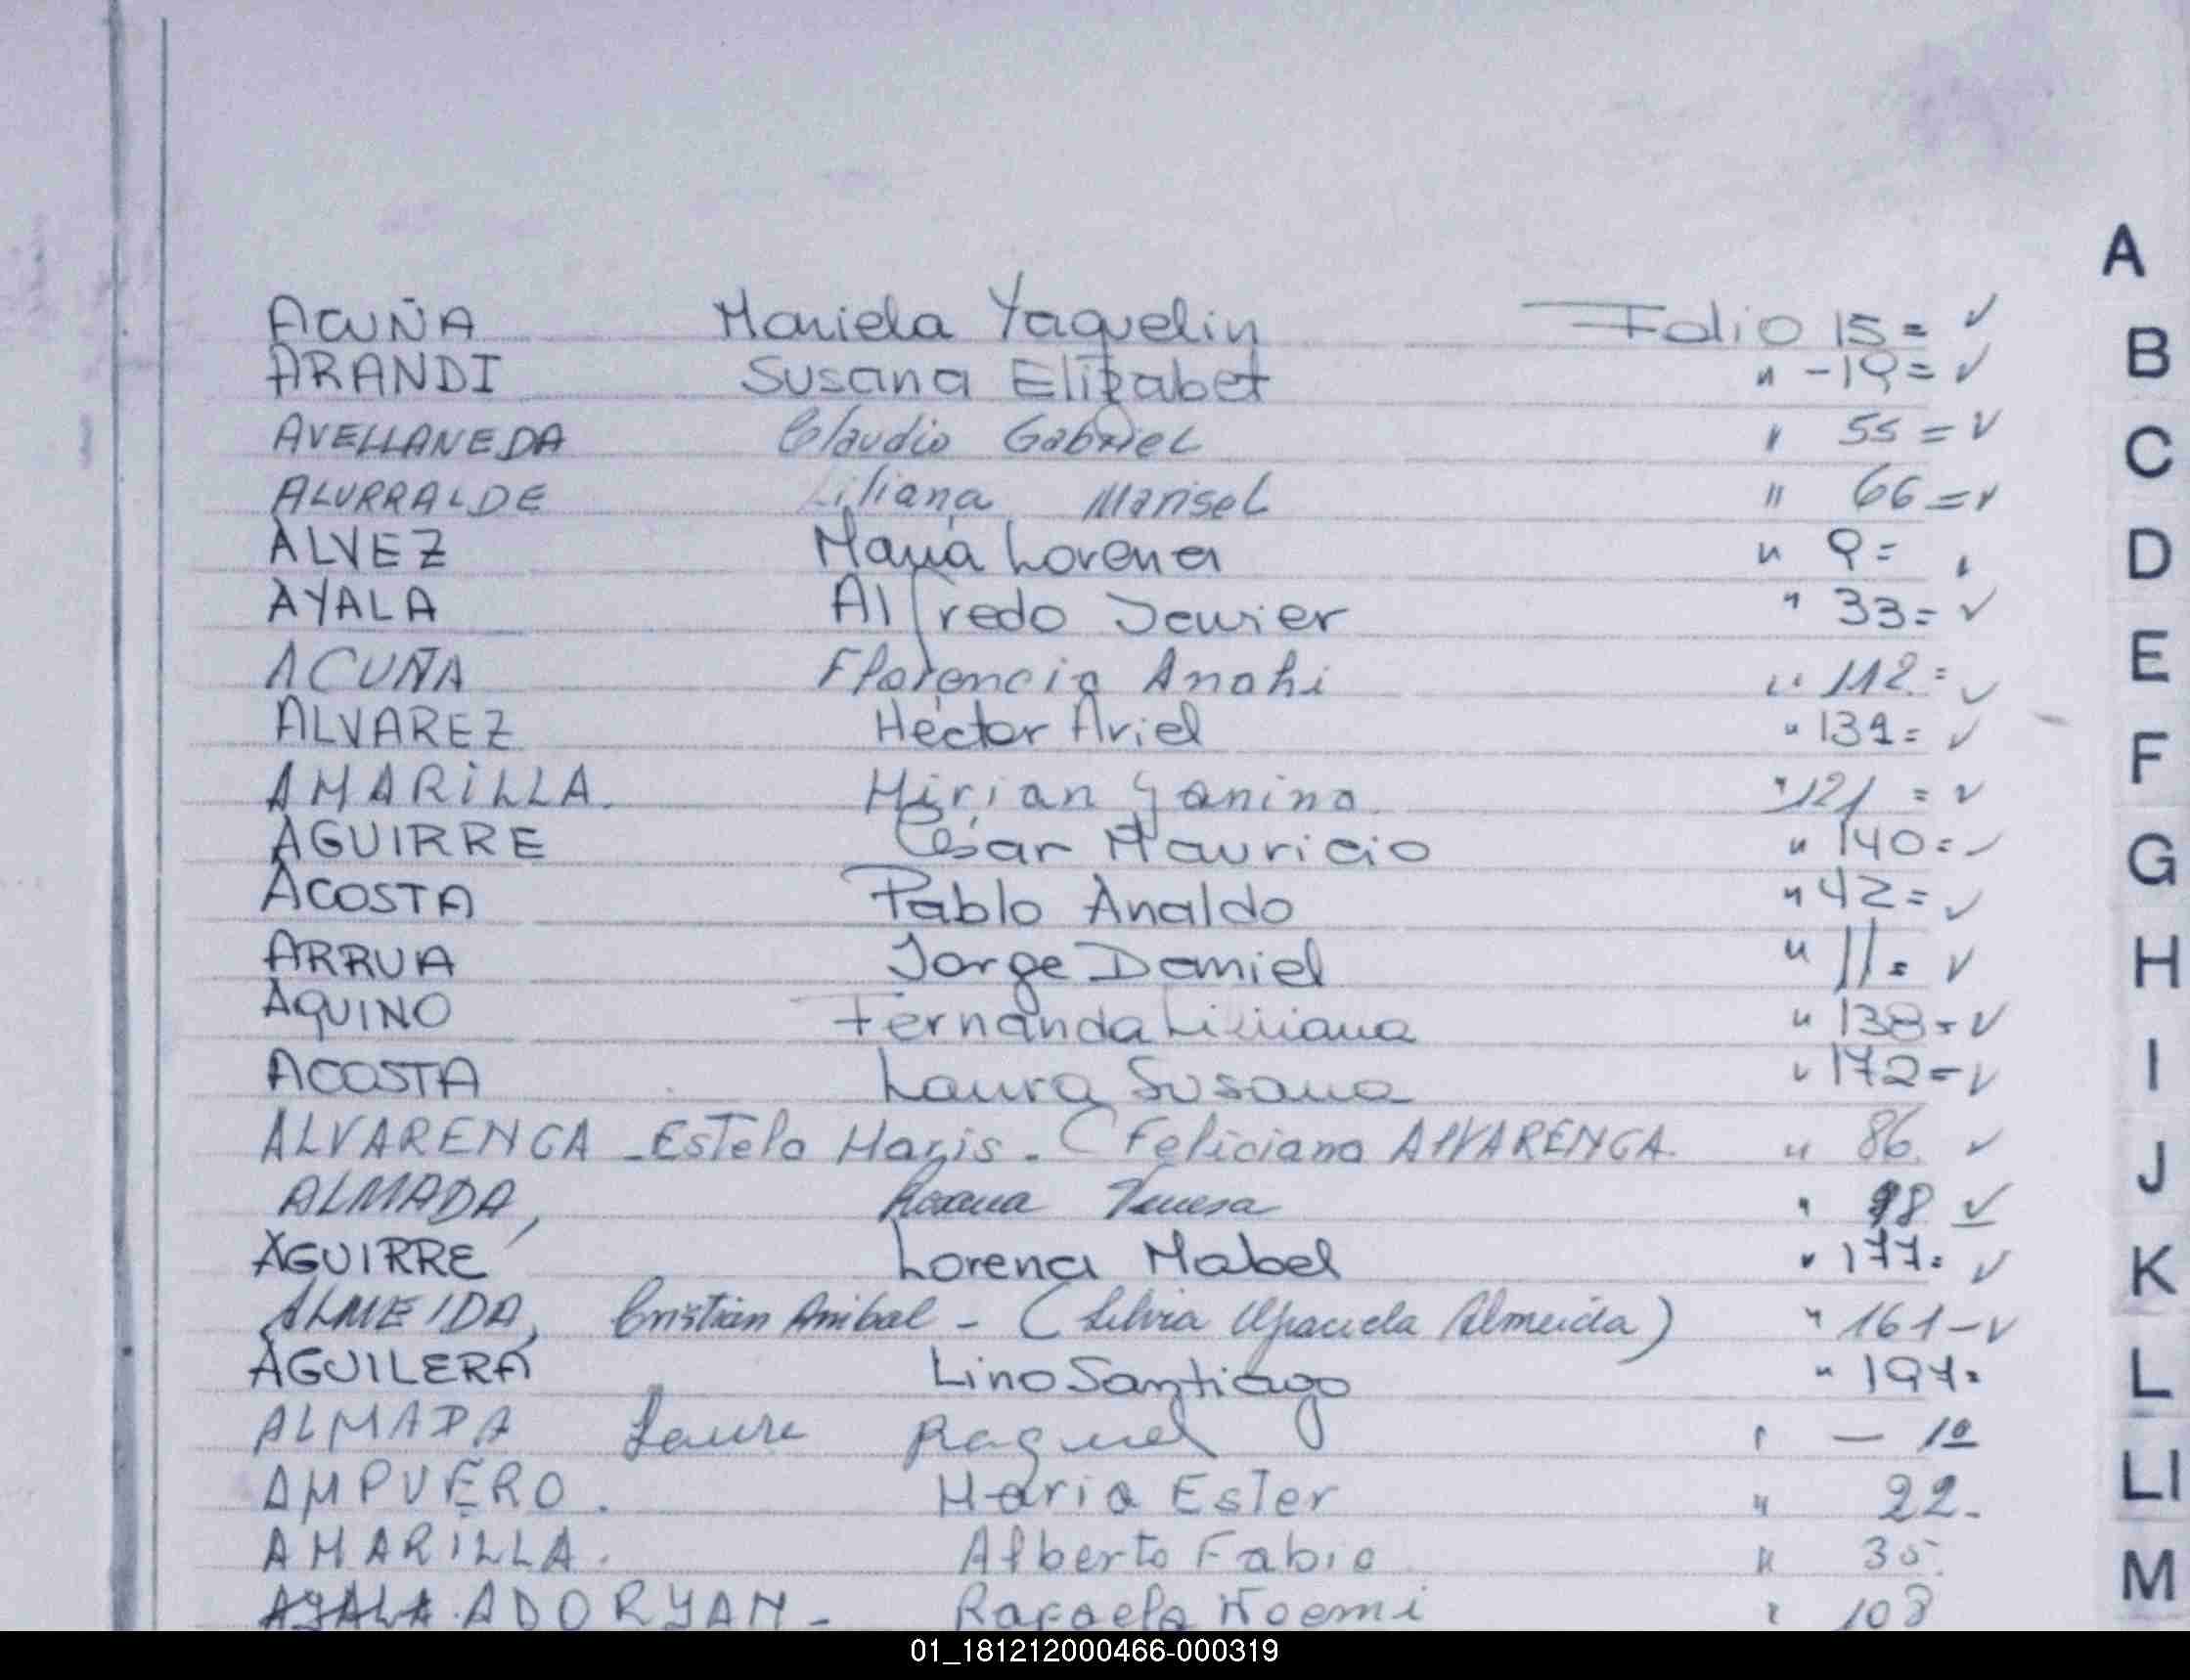 A
ACUÑA Mariela Yaquelin Folio 15= ✓
ARANDI Susana Elizabet " -19= ✓
B
AVELLANEDA Claudio Gabriel " 55= ✓
C
ALURRALDE Liliana Marisel " 66= ✓
ALVEZ María Lorena " 9=
D
AYALA Alfredo Javier " 33= ✓
ACUÑA Florencia Anahi " 112= ✓
E
ALVAREZ Héctor Ariel " 131= ✓
F
AMARILLA. Mirian Yanina " 121= ✓
AGUIRRE César Mauricio " 140= ✓
G
ACOSTA Pablo Analdo " 42= ✓
ARRUA Jorge Daniel " 11= ✓
H
AQUINO Fernanda Liliana " 138= ✓
ACOSTA Laura Susana " 172= ✓
I
ALVARENGA - Estela Maris - (Feliciana ALVARENGA " 86 ✓
J
ALMADA, Roxana " 98 ✓
AGUIRRE Lorena Mabel " 177= ✓
K
ALMEIDA, Cristian Anibal - (Silvia Aparecida Almeida) " 161- ✓
AGUILERA Lino Santiago " 197=
L
ALMADA Laura Raquel " - 10
AMPUERO. Maria Ester " 22-
LL
AMARILLA. Alberto Fabio " 35
M
AYALA. ADORYAN - Rafaela Noemi " 108
01_181212000466-000319